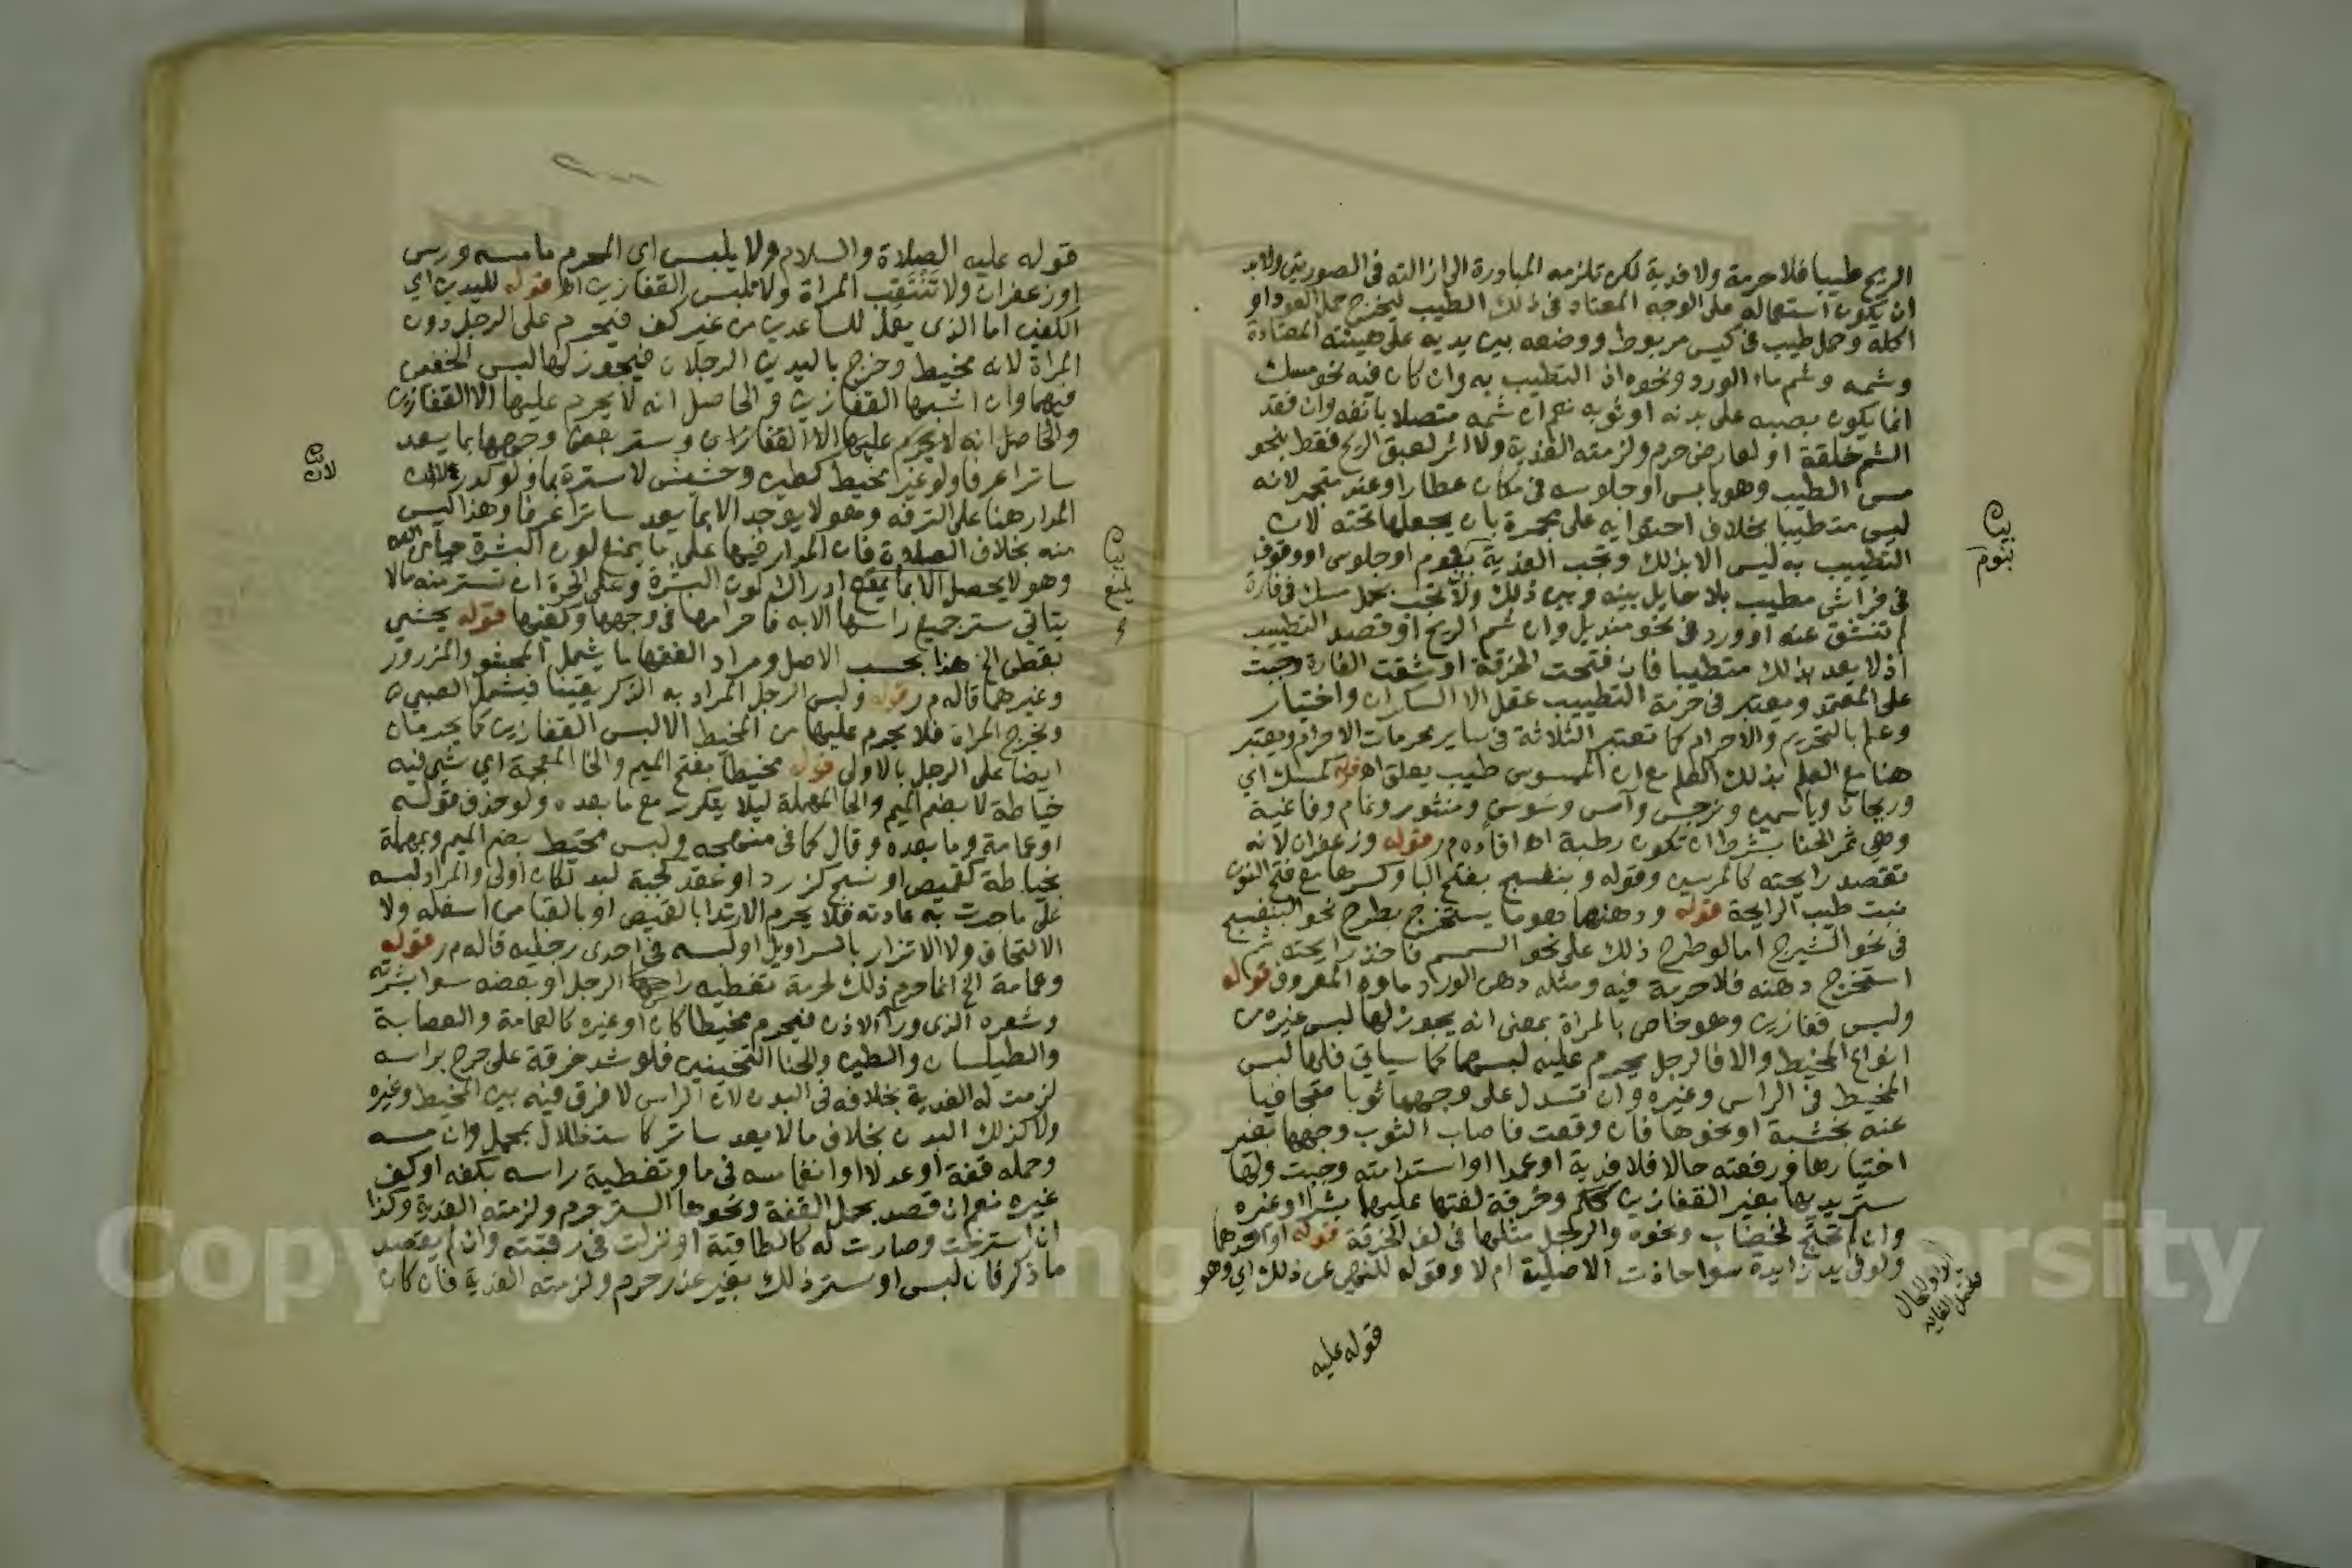 الريح طيبا فلا حرمة ولا فدية لكن تلزمه المبادرة الى ازالته في الصورتين ولابد
ان يكون استعماله على الوجه المعتاد في ذلك الطيب ليخرج حمل العود او
اكله وحمل طيب في كيس مربوط ووضعه بين يديه على هيئته المعتادة
وشمه وشم ماء الورد ونحوه اذ التطيب به وان كان فيه نحو مسك
انما يكون بصبه على بدنه او ثوبه نعم ان شمه متصلا بانفه وان فقد
الشم خلقة او لعارض حرم ولزمته الفدية ولا اثر لعبق الريح فقط بنحو
مس الطيب وهو يابس او جلوسه في مكان عطار او عند متجمر لانه
ليس متطيبا بخلاف احتوائه على مجمرة بان يجعلها تحته لان
التطييب به ليس الا بذلك وتجب الفدية بنوم او جلوس او وقوف
في فراش مطيب بلا حايل بينه وبين ذلك ولا تجب بحمل مسك في فارة
لم تنشق عنه او ورد في نحو منديل وان شم الريح او قصد التطييب
اذ لا يعد بذلك متطيبا فان فتحت الخرقة او شقت الفارة وجبت
على المعتمد ويعتبر في حرمة التطييب عقل الا السكران واختيار
وعلم بالتحريم والاحرام كما تعتبر الثلاثة في ساير محرمات الاحرام ويعتبر
هنا مع العلم بذلك العلم مع ان الممسوس طيب يعلق اه قوله كمسك اي
وريحان وياسمين ونرجس وآس وسوس ومنثور ونمام وفاغية
وهي ثمر الحنا بشرط ان تكون رطبة اه افاده م ر قوله وزعفران لانه
تقصد رايحته كالمرسين وقوله وبنفسج بفتح البا وكسرها مع فتح النون
نبت طيب الرايحة قوله ودهنها هو ما يستخرج بطرح نحو البنفسج
في نحو الشيرج اما لو طرح ذلك على نحو السمسم فاخذ رايحته ثم
استخرج دهنه فلا حرمة فيه ومثله دهن الورد ماوه المعروف قوله
ولبس قفازين وهو خاص بالمراة بمعنى انه يجوز لها لبس غيره من
انواع المخيط والا فالرجل يحرم عليه لبسهما كما سياتي فلها لبس
المخيط في الراس وغيره وان تسدل على وجهها ثوبا متجافيا
عنه بخشبة او نحوها فان وقعت فاصاب الثوب وجهها بغير
اختيارها فرفعته حالا فلا فدية او عمدا او استدامته وجبت ولها
ستر يديها بغير القفازين ككم وخرقة لفتها عليها بشد او غيره
وان لم تحتج لخضاب ونحوه والرجل مثلها في لف الخرقة قوله او احدهما
ولو في يد زايدة سوا حاذت الاصلية ام لا وقوله للنهي عن ذلك اي وهو
قوله عليه
بيان
بنوم
قوله عليه الصلاة والسلام ولا يلبس اي المحرم ما مسه ورس
او زعفران ولا تنتقب المراة ولا تلبس القفازين اه قوله لليدين اي
الكفين اما الذي يعمل للساعدين من غير كف فيحرم على الرجل دون
المراة لانه مخيط وخرج باليدين الرجلان فيجوز لها لبس الخفين
فيهما وان اشبها القفازين والحاصل انه لا يحرم عليها الا القفازين
والحاصل انه لا يحرم عليها الا القفازان وستر بعض وجهها بما يعد
ساترا عرفا ولو غير مخيط كطين وحشيش لا ستره بماء ولو كدر لان
المدار هنا على الترفه وهو لا يوجد الا بما يعد ساترا عرفا وهذا ليس
منه بخلاف الصلاة فان المدار فيها على ما يمنع لون البشرة
وهو لا يحصل الا بما يمنع ادراك لون البشرة وعلى الحرة ان تستر منه ما لا
يتاتى ستر جميع راسها الا به فاحرامها في وجهها وكفيها قوله بحشي
بقطن الخ هذا بحسب الاصل ومراد الفقها ما يشمل المحشو والمزرور
وغيرهما قاله م ر قوله ولبس الرجل المراد به الذكر يقينا فيشمل الصبي
ويخرج المراة فلا يحرم عليها من المخيط الا لبس القفازين كما يحرمان
ايضا على الرجل بالاولى قوله مخيطا بفتح الميم والخا المعجمة اي شي فيه
خياطة لا بضم الميم والحا المهملة ليلا يتكرر مع ما بعده ولو حذف قوله
او عمامة وما بعده وقال كما في منهجه ولبس محيط بضم الميم وبمهملة
بخياطة كقميص او نسج كزرد او عقد كجبة لبد لكان اولى والمراد لبسه
على ما جرت به عادته فلا يحرم الارتدا بالقميص او بالقبا من اسفله ولا
الالتحاف ولا الاتزار بالسراويل او لبسه في احدى رجليه قاله م ر قوله
وعمامة الخ انما حرم ذلك لحرمة تغطيه راس الرجل او بعضه سوا بشرته
وشعره الذي وراء الاذن فيحرم مخيطا كان او غيره كالعمامة والعصابة
والطيلسان والطين والحنا الثخينين فلو شد خرقة على جرح براسه
لزمت له الفدية بخلافه في البدن لان الراس لا فرق فيه بين المخيط وغيره
ولا كذلك البدن بخلاف ما لا يعد ساترا كاستظلال بمحمل وان مسه
وحمله قفة او عدلا او انغماسه في ماء وتغطية راسه بكفه او كف
غيره نعم ان قصد بحمل القفة ونحوها الستر حرم ولزمته الفدية وكذا
ان استرخت وصارت له كالطاقية او نزلت في رقبته وان لم يقصد
ما ذكر فان لبس او ستر ذلك بغير عذر حرم ولزمته الفدية فان كان
بيان
يمنع
بيان
لان
Copyright © King Saud University